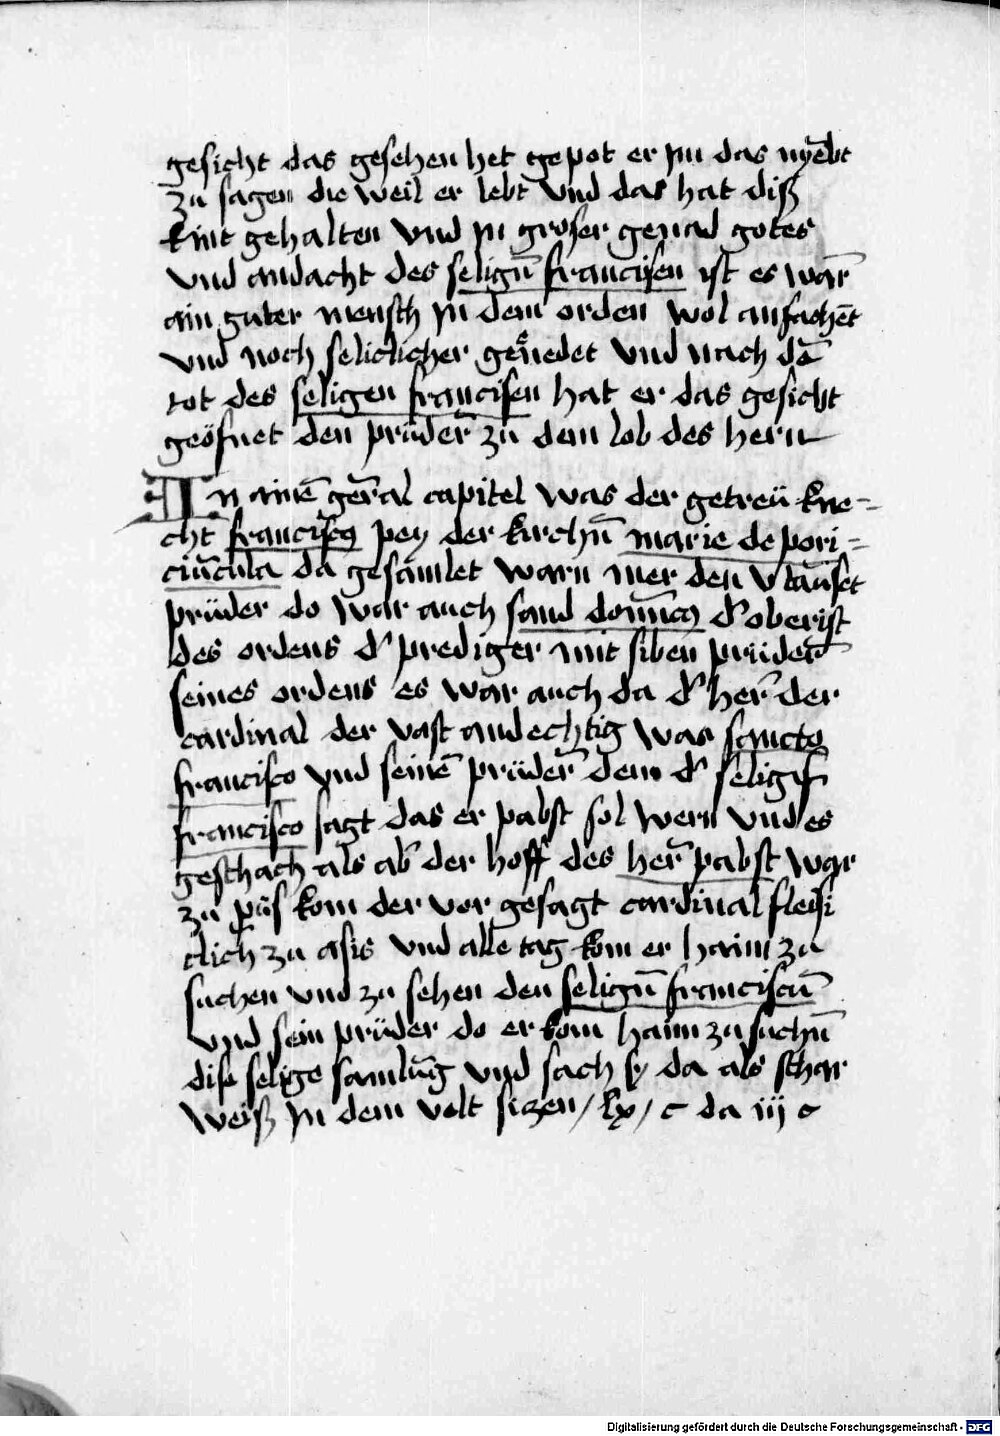 gesicht das gesehen het gepot er jm das nyēbt
zu sagen die weil er lebt vnd das hat diß
kint gehalten vnd jn groser genad gotes
vnd andacht des selign̄ francisen ist es war̄
ain guter mensch jn dem orden wol anfachēt
vnd noch seliclicher geēnedet vnd nach dē
tot des seligen francisen hat er das gesicht
geöfnet den prüder̄ zu dem lob des hern
In ainē gen̄al capitel was der getreü kne-
cht francisc9 pey der kirchn̄ marie de pori-
ciūcula da gesamlet warn mer den v tausēt
prüder do war auch sand domīc9 d' oberist
des ordens d' prediger mit siben prüder̄
seines ordens es war auch da d' her̄ der
cardinal der vast andechtig was sancto
francisco vnd seinē prüder̄ dem d' selig
francisco sagt das er pabst sol wern vnd es
geschach als ab der hoff des her̄ pabst war
zu p̄us kom der vor gesagt cardinal fleisi
clich zu asis vnd alle tag kom er haim zu
suchen vnd zu sehen den selign̄ franciscū
vnd sein prüder do er kom haim zu suchn̄
dise selige samlūg vnd sach sy da als schar
weiß jn dem velt sizen / lx / c da iij c
Digitalisierung gefördert durch die Deutsche Forschungsgemeinschaft - DFG